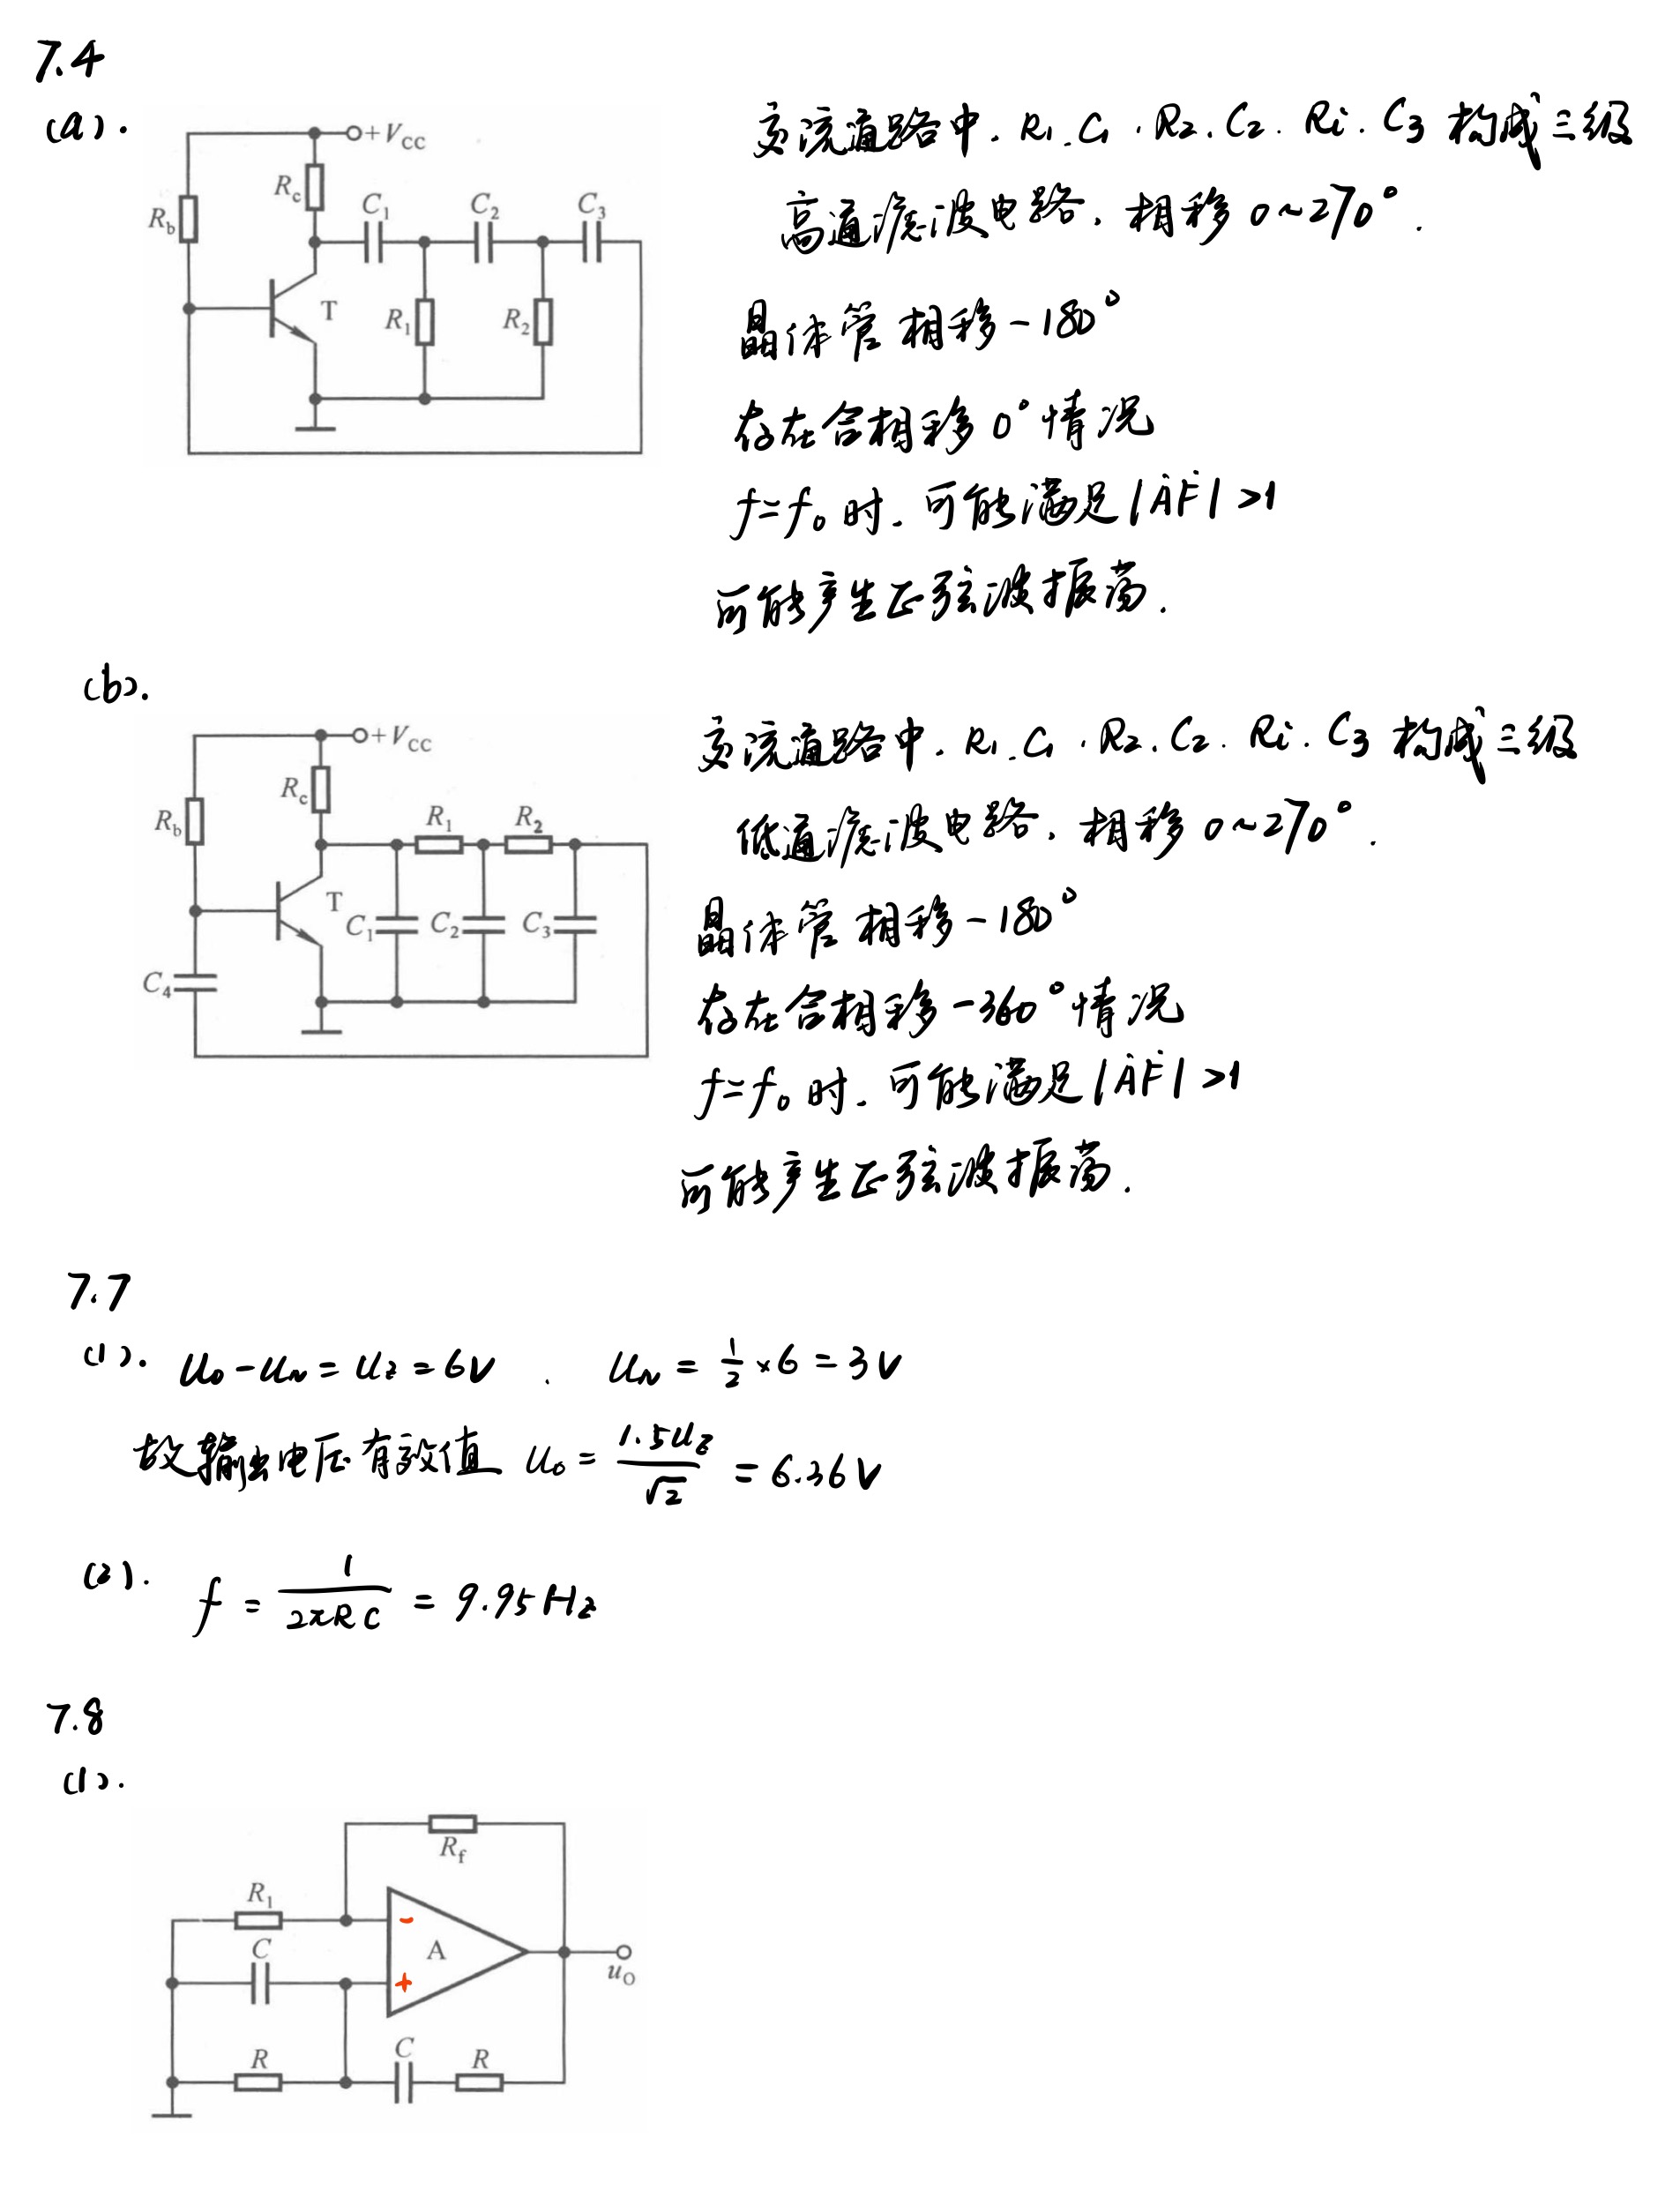 7.4
(a).
+VCC
Rc
Rb
C1
C2
C3
T
R1
R2
交流通路中. R1.C1 . R2. C2. Ri. C3 构成三级
高通滤波电路, 相移 0~270°.
晶体管 相移 -180°
存在合相移 0°情况
f=f0 时. 可能满足 |ȦḞ| >1
可能产生正弦波振荡.
(b).
+VCC
Rc
Rb
R1
R2
T
C1
C2
C3
C4
交流通路中. R1.C1 . R2. C2. Ri. C3 构成三级
低通滤波电路, 相移 0~270°.
晶体管 相移 -180°
存在合相移 -360°情况
f=f0 时. 可能满足 |ȦḞ| >1
可能产生正弦波振荡.
7.7
(1). uo-uN = uz = 6V . uN = 1/2 × 6 = 3V
故输出电压有效值 uo = 1.5uz/√2 = 6.36V
(2). f = 1/2πRC = 9.95Hz
7.8
(1).
Rf
R1
-
A
C
+
uO
R
C
R